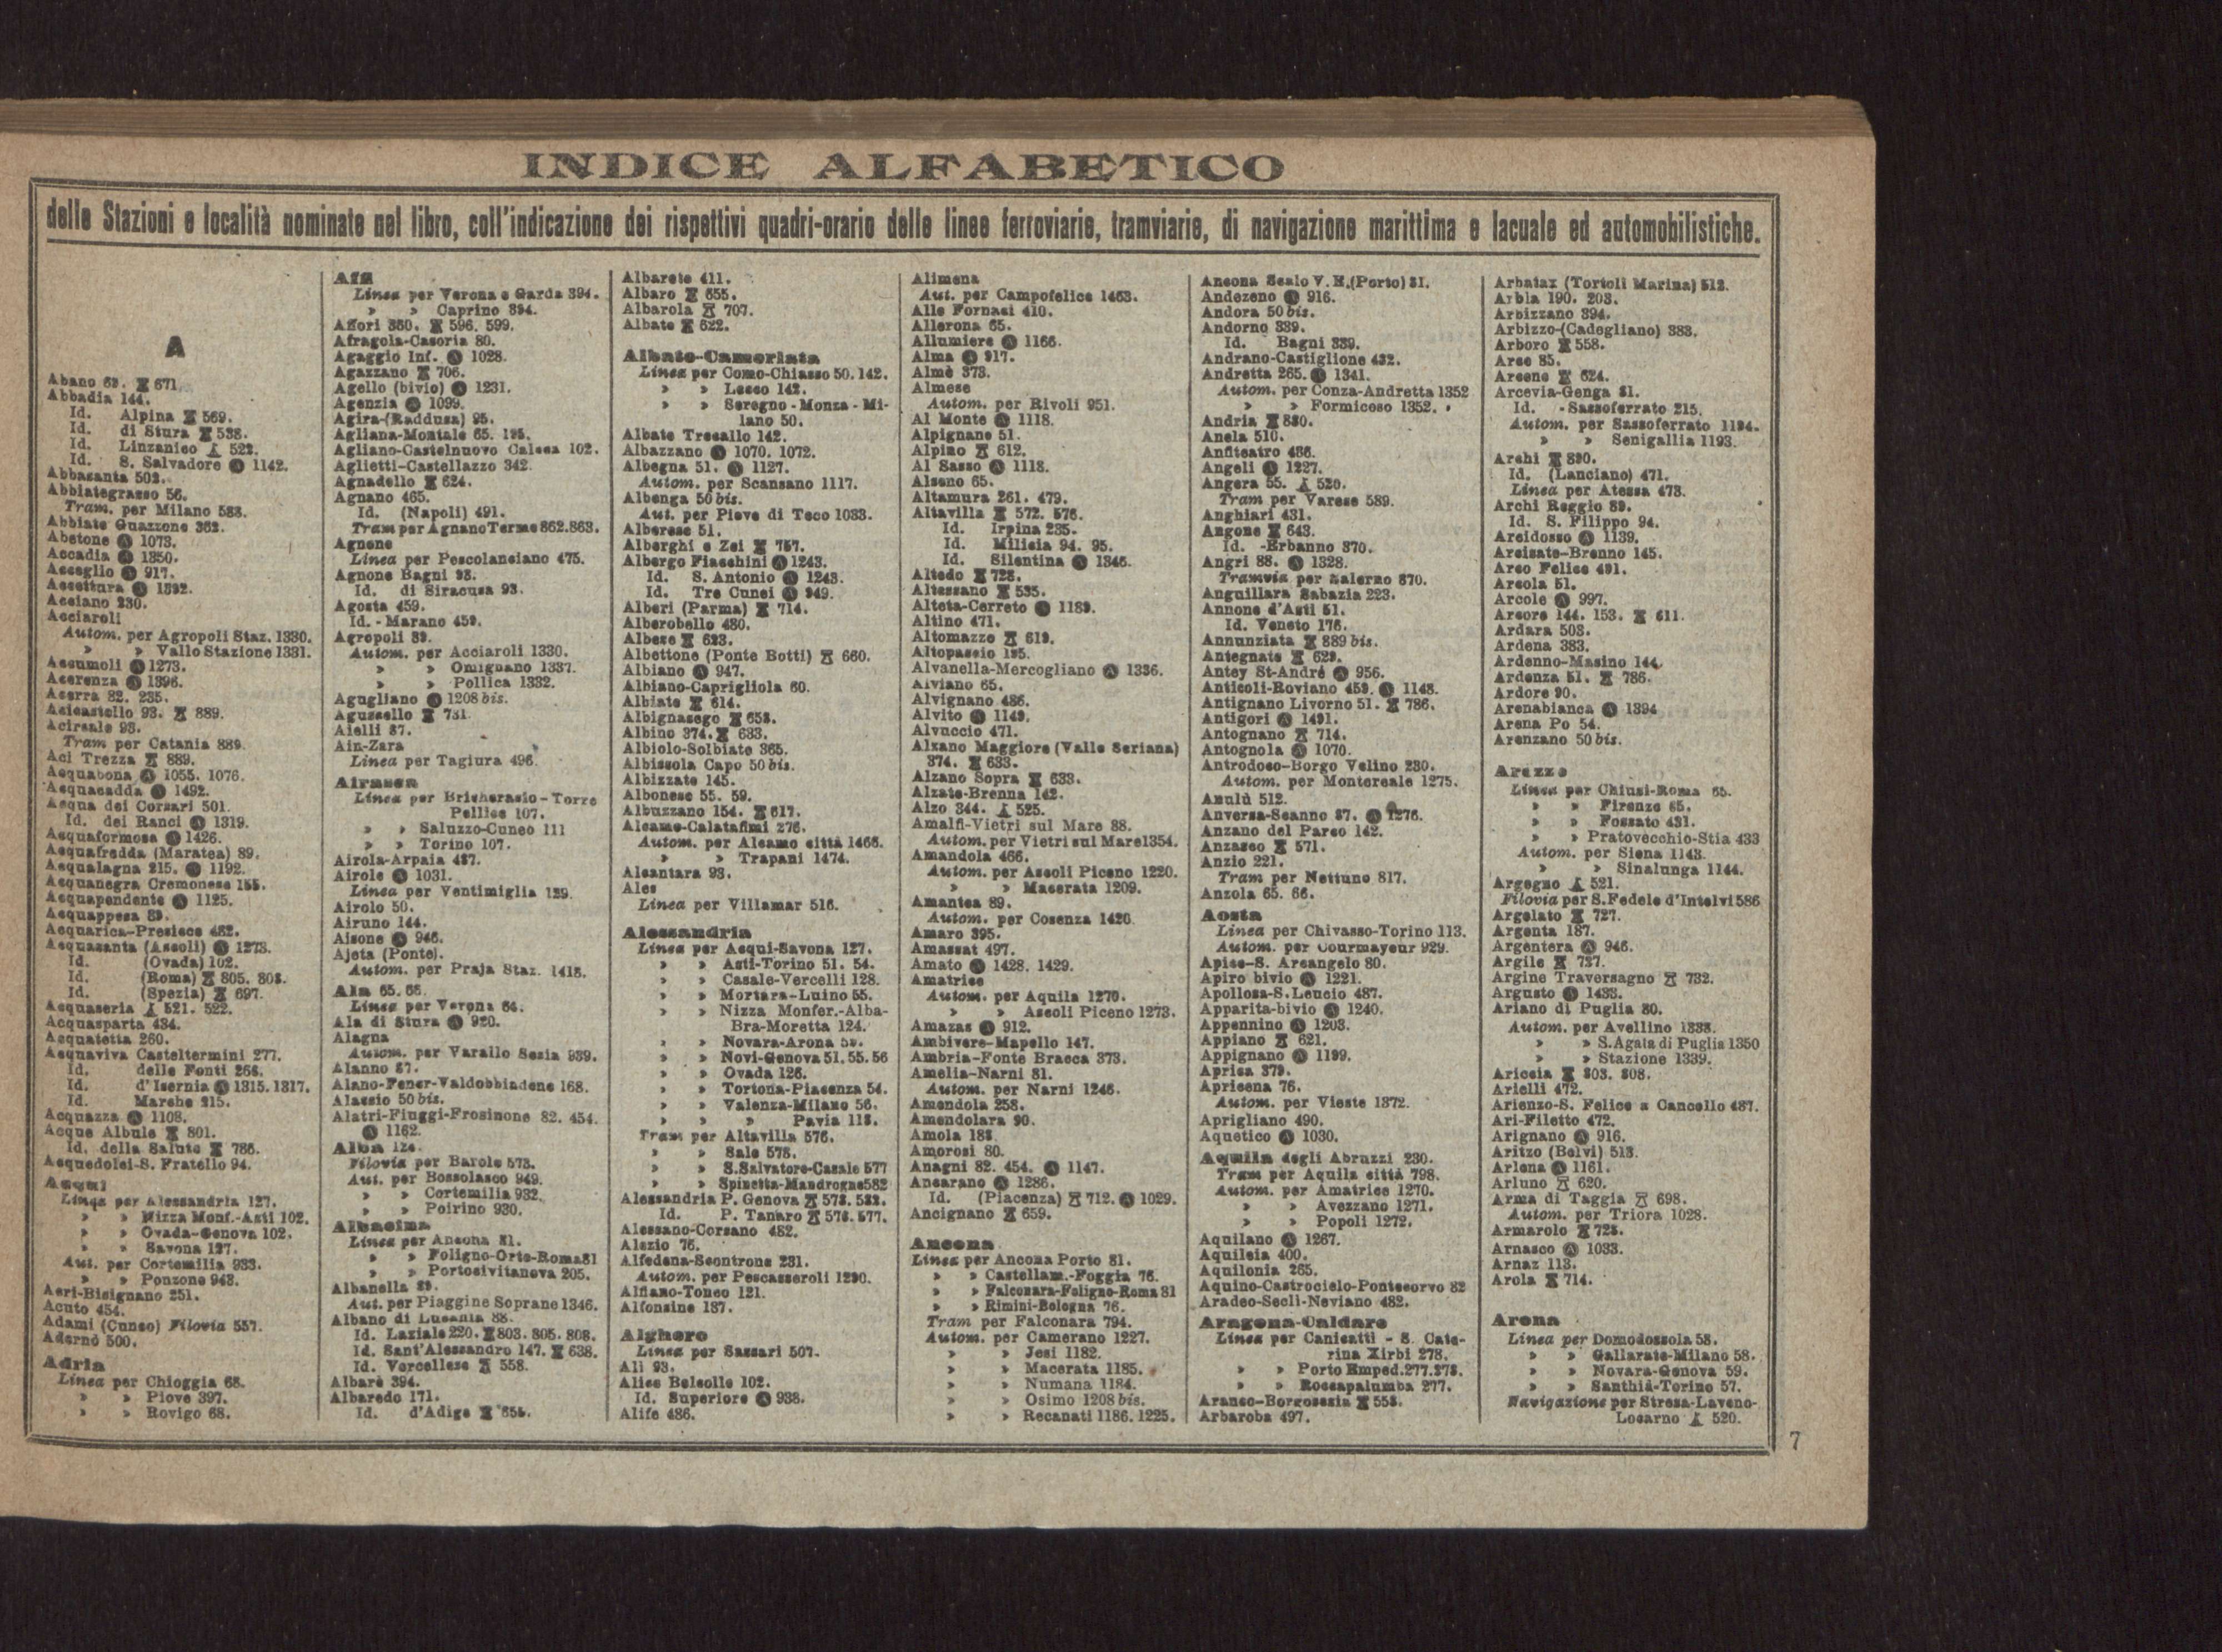 INDICE ALFABETICO
delle Stazioni e località nominate nel libro, coll'indicazione dei rispettivi quadri-orario delle linee ferroviarie, tramviarie, di navigazione marittima e lacuale ed automobilistiche.
A
Abano 68. 671.
Abbadia 144.
Id. Alpina 569.
Id. di Stura 538.
Id. Linzanico 522.
Id. S. Salvadore Ⓐ 1142.
Abbasanta 502.
Abbiategrasso 56.
Tram. per Milano 583.
Abbiate Guazzone 362.
Abetone Ⓐ 1073.
Accadia Ⓐ 1350.
Acceglio Ⓐ 917.
Accettura Ⓐ 1392.
Acciano 230.
Acciaroli
Autom. per Agropoli Staz. 1330.
» » Vallo Stazione 1331.
Accumoli Ⓐ 1273.
Acerenza Ⓐ 1396.
Acerra 82. 235.
Acicastello 93. 889.
Acireale 93.
Tram per Catania 889.
Aci Trezza 889.
Acquabona Ⓐ 1055. 1076.
Acquacadda Ⓐ 1492.
Acqua dei Corsari 501.
Id. dei Ranci Ⓐ 1319.
Acquaformosa Ⓐ 1426.
Acquafredda (Maratea) 89.
Acqualagna 215. Ⓐ 1192.
Acquanegra Cremonese 155.
Acquapendente Ⓐ 1125.
Acquappesa 89.
Acquarica-Presicce 482.
Acquasanta (Ascoli) Ⓐ 1273.
Id. (Ovada) 102.
Id. (Roma) 805. 808.
Id. (Spezia) 697.
Acquaseria 521. 522.
Acquasparta 434.
Acquatetta 260.
Acquaviva Casteltermini 277.
Id. delle Fonti 268.
Id. d'Isernia Ⓐ 1315. 1317.
Id. Marche 215.
Acquazza Ⓐ 1108.
Acque Albule 801.
Id. della Salute 786.
Acquedolci-S. Fratello 94.
Acqui
Linea per Alessandria 127.
» » Nizza Monf.-Asti 102.
» » Ovada-Genova 102.
» » Savona 127.
Aut. per Cortemilia 933.
» » Ponzone 943.
Acri-Bisignano 251.
Acuto 454.
Adami (Cuneo) Filovia 557.
Adernò 500.
Adria
Linea per Chioggia 68.
» » Piove 397.
» » Rovigo 68.
Affi
Linea per Verona e Garda 394.
» » Caprino 394.
Affori 360. 596. 599.
Afragola-Casoria 80.
Agaggio Inf. Ⓐ 1028.
Agazzano 706.
Agello (bivio) Ⓐ 1231.
Agenzia Ⓐ 1099.
Agira-(Raddusa) 95.
Agliana-Montale 65. 195.
Agliano-Castelnuovo Calcea 102.
Aglietti-Castellazzo 342.
Agnadello 624.
Agnano 465.
Id. (Napoli) 491.
Tram per Agnano Terme 862.863.
Agnone
Linea per Pescolanciano 475.
Agnone Bagni 93.
Id. di Siracusa 93.
Agosta 459.
Id. - Marano 459.
Agropoli 89.
Autom. per Acciaroli 1330.
» » Omignano 1337.
» » Pollica 1332.
Agugliano Ⓐ 1208 bis.
Agussello 731.
Aielli 87.
Ain-Zara
Linea per Tagiura 496.
Airasca
Linea per Bricherasio-Torre
Pellice 107.
» » Saluzzo-Cuneo 111
» » Torino 107.
Airola-Arpaia 487.
Airole Ⓐ 1031.
Linea per Ventimiglia 129.
Airolo 50.
Airuno 144.
Aisone Ⓐ 946.
Ajeta (Ponte).
Autom. per Praja Staz. 1418.
Ala 65. 66.
Linea per Verona 64.
Ala di Stura Ⓐ 920.
Alagna
Autom. per Varallo Sesia 939.
Alanno 87.
Alano-Fener-Valdobbiadene 168.
Alassio 50 bis.
Alatri-Fiuggi-Frosinone 82. 454.
Ⓐ 1162.
Alba 124.
Filovia per Barolo 573.
Aut. per Bossolasco 949.
» » Cortemilia 932.
» » Poirino 930.
Albacina
Linea per Ancona 81.
» » Foligno-Orte-Roma 81
» » Portocivitanova 205.
Albanella 89.
Aut. per Piaggine Soprane 1346.
Albano di Lucania 88.
Id. Laziale 220. 803. 805. 808.
Id. Sant'Alessandro 147. 638.
Id. Vercellese 558.
Albarè 394.
Albaredo 171.
Id. d'Adige 655.
Albarete 411.
Albaro 655.
Albarola 707.
Albate 622.
Albate-Camerlata
Linea per Como-Chiasso 50. 142.
» » Lecco 142.
» » Seregno-Monza-Mi-
lano 50.
Albate Trecallo 142.
Albazzano Ⓐ 1070. 1072.
Albegna 51. Ⓐ 1127.
Autom. per Scansano 1117.
Albenga 50 bis.
Aut. per Pieve di Teco 1033.
Alberese 51.
Alberghi e Zei 757.
Albergo Fiacchini Ⓐ 1243.
Id. S. Antonio Ⓐ 1243.
Id. Tre Cunei Ⓐ 949.
Alberi (Parma) 714.
Alberobello 480.
Albese 623.
Albettone (Ponte Botti) 660.
Albiano Ⓐ 947.
Albiano-Caprigliola 60.
Albiate 614.
Albignasego 658.
Albino 374. 633.
Albiolo-Solbiate 365.
Albissola Capo 50 bis.
Albizzate 145.
Albonese 55. 59.
Albuzzano 154. 617.
Alcamo-Calatafimi 276.
Autom. per Alcamo città 1466.
» » Trapani 1474.
Alcantara 93.
Ales
Linea per Villamar 516.
Alessandria
Linea per Acqui-Savona 127.
» » Asti-Torino 51. 54.
» » Casale-Vercelli 128.
» » Mortara-Luino 55.
» » Nizza Monfer.-Alba-
Bra-Moretta 124.
» » Novara-Arona 59.
» » Novi-Genova 51. 55. 56
» » Ovada 126.
» » Tortona-Piacenza 54.
» » Valenza-Milano 56.
» » » Pavia 118.
Tram per Altavilla 576.
» » Sale 578.
» » S. Salvatore-Casale 577
» » Spinetta-Mandrogne 582
Alessandria P. Genova 578. 582.
Id. P. Tanaro 576. 577.
Alessano-Corsano 482.
Alezio 76.
Alfedena-Scontrone 231.
Autom. per Pescasseroli 1290.
Alfiano-Tonco 121.
Alfonsine 187.
Alghero
Linea per Sassari 507.
Alì 93.
Alice Belcolle 102.
Id. Superiore Ⓐ 938.
Alife 486.
Alimena
Aut. per Campofelice 1463.
Alle Fornaci 410.
Allerona 65.
Allumiere Ⓐ 1166.
Alma Ⓐ 917.
Almè 373.
Almese
Autom. per Rivoli 951.
Al Monte Ⓐ 1118.
Alpignano 51.
Alpino 612.
Al Sasso Ⓐ 1118.
Alseno 65.
Altamura 261. 479.
Altavilla 572. 576.
Id. Irpina 235.
Id. Milicia 94. 95.
Id. Silentina Ⓐ 1346.
Altedo 728.
Altessano 535.
Alteta-Cerreto Ⓐ 1189.
Altino 471.
Altomazzo 619.
Altopascio 195.
Alvanella-Mercogliano Ⓐ 1336.
Alviano 65.
Alvignano 486.
Alvito Ⓐ 1149.
Alvuccio 471.
Alzano Maggiore (Valle Seriana)
374. 633.
Alzano Sopra 633.
Alzate-Brenna 142.
Alzo 344. 525.
Amalfi-Vietri sul Mare 88.
Autom. per Vietri sul Mare 1354.
Amandola 466.
Autom. per Ascoli Piceno 1220.
» » Macerata 1209.
Amantea 89.
Autom. per Cosenza 1420.
Amaro 395.
Amassat 497.
Amato Ⓐ 1428. 1429.
Amatrice
Autom. per Aquila 1270.
» » Ascoli Piceno 1273.
Amazas Ⓐ 912.
Ambivere-Mapello 147.
Ambria-Fonte Bracca 373.
Amelia-Narni 81.
Autom. per Narni 1246.
Amendola 258.
Amendolara 90.
Amola 188.
Amorosi 80.
Anagni 82. 454. Ⓐ 1147.
Ancarano Ⓐ 1286.
Id. (Piacenza) 712. Ⓐ 1029.
Ancignano 659.
Ancona
Linea per Ancona Porto 81.
» » Castellam.-Foggia 76.
» » Falconara-Foligno-Roma 81
» » Rimini-Bologna 76.
Tram per Falconara 794.
Autom. per Camerano 1227.
» » Jesi 1182.
» » Macerata 1185.
» » Numana 1184.
» » Osimo 1208 bis.
» » Recanati 1186. 1225.
Ancona Scalo V. E. (Porto) 81.
Andezeno Ⓐ 916.
Andora 50 bis.
Andorno 339.
Id. Bagni 339.
Andrano-Castiglione 482.
Andretta 265. Ⓐ 1341.
Autom. per Conza-Andretta 1352
» » Formicoso 1352.
Andria 880.
Anela 510.
Anfiteatro 466.
Angeli Ⓐ 1227.
Angera 55. 520.
Tram per Varese 589.
Anghiari 431.
Angone 643.
Id. -Erbanno 370.
Angri 88. Ⓐ 1328.
Tramvia per Salerno 870.
Anguillara Sabazia 223.
Annone d'Asti 51.
Id. Veneto 176.
Annunziata 889 bis.
Antegnate 629.
Antey St-André Ⓐ 956.
Anticoli-Roviano 459. Ⓐ 1148.
Antignano Livorno 51. 786.
Antigori Ⓐ 1491.
Antognano 714.
Antognola Ⓐ 1070.
Antrodoco-Borgo Velino 230.
Autom. per Montereale 1275.
Anulù 512.
Anversa-Scanno 87. Ⓐ 1276.
Anzano del Parco 142.
Anzasco 571.
Anzio 221.
Tram per Nettuno 817.
Anzola 65. 66.
Aosta
Linea per Chivasso-Torino 113.
Autom. per Courmayeur 929.
Apice-S. Arcangelo 80.
Apiro bivio Ⓐ 1221.
Apollosa-S. Leucio 487.
Apparita-bivio Ⓐ 1240.
Appennino Ⓐ 1203.
Appiano 621.
Appignano Ⓐ 1199.
Aprica 379.
Apricena 76.
Autom. per Vieste 1372.
Aprigliano 490.
Aquetico Ⓐ 1030.
Aquila degli Abruzzi 230.
Tram per Aquila città 798.
Autom. per Amatrice 1270.
» » Avezzano 1271.
» » Popoli 1272.
Aquilano Ⓐ 1267.
Aquileia 400.
Aquilonia 265.
Aquino-Castrocielo-Pontecorvo 82
Aradeo-Seclì-Neviano 482.
Aragona-Caldare
Linea per Canicattì - S. Cate-
rina Xirbi 278.
» » Porto Emped. 277.278.
» » Roccapalumba 277.
Aranco-Borgosesia 553.
Arbaroba 497.
Arbatax (Tortolì Marina) 512.
Arbla 190. 203.
Arbizzano 394.
Arbizzo-(Cadegliano) 383.
Arboro 558.
Arce 85.
Arcene 624.
Arcevia-Genga 81.
Id. -Sassoferrato 215.
Autom. per Sassoferrato 1194.
» » Senigallia 1193.
Archi 890.
Id. (Lanciano) 471.
Linea per Atessa 473.
Archi Reggio 89.
Id. S. Filippo 94.
Arcidosso Ⓐ 1139.
Arcisate-Brenno 145.
Arco Felice 491.
Arcola 51.
Arcole Ⓐ 997.
Arcore 144. 153. 611.
Ardara 503.
Ardena 383.
Ardenno-Masino 144.
Ardenza 51. 786.
Ardore 90.
Arenabianca Ⓐ 1394
Arena Po 54.
Arenzano 50 bis.
Arezzo
Linea per Chiusi-Roma 65.
» » Firenze 65.
» » Fossato 431.
» » Pratovecchio-Stia 433
Autom. per Siena 1143.
» » Sinalunga 1144.
Argegno 521.
Filovia per S. Fedele d'Intelvi 586
Argelato 727.
Argenta 187.
Argentera Ⓐ 946.
Argile 727.
Argine Traversagno 732.
Argusto Ⓐ 1433.
Ariano di Puglia 80.
Autom. per Avellino 1338.
» » S. Agata di Puglia 1350
» » Stazione 1339.
Ariccia 803. 808.
Arielli 472.
Arienzo-S. Felice a Cancello 487.
Ari-Filetto 472.
Arignano Ⓐ 916.
Aritzo (Belvì) 513.
Arlena Ⓐ 1161.
Arluno 620.
Arma di Taggia 698.
Autom. per Triora 1028.
Armarolo 728.
Arnasco Ⓐ 1033.
Arnaz 113.
Arola 714.
Arona
Linea per Domodossola 58.
» » Gallarate-Milano 58.
» » Novara-Genova 59.
» » Santhià-Torino 57.
Navigazione per Stresa-Laveno-
Locarno 520.
7